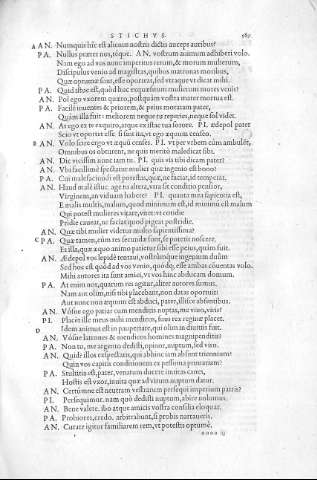 STICHVS 589
A AN. Numquis hîc est alienus nostris dictis auceps auribus?
PA. Nullus præter nos, téque. AN. vostrum animum adhiberi volo.
Nam ego ad vos nunc imperitus rerum, & morum mulierum,
Discipulus venio ad magistras, quibus matronas moribus,
Quæ optumæ sunt, esse oportet, sed vtraque vt dicat mihi.
PA. Quid istuc est, quòd huc exquisitum mulierum mores venis?
AN. Pol ego vxorem quæro, postquam vostra mater mortua est.
PA. Facilè inuenies & peiorem, & peius moratam pater,
Quàm illa fuit: meliorem neque tu reperies, neque sol videt.
AN. At ego ex te exquiro, atque ex istac tua sorore. PI. ædepol pater
Scio vt oportet esse. si sint ita, vt ego æquum censeo.
B AN. Volo scire ergo vt æquũ censes. PI. vt per vrbem cùm ambulẽt,
Omnibus os obturent, ne quis meritò maledicat sibi.
AN. Dic vicissim nunc iam tu. PA. quid vis tibi dicam pater?
AN. Vbi facillimè spectatur mulier quæ ingenio est bono?
PA. Cui malè faciundi est potestas, quæ, ne faciat, id temperat.
AN. Haud malè istuc. age tu altera, vtra sit conditio pensior,
Virginem, an viduam habere? PI. quanta mea sapientia est,
E malis multis, malum, quod minimum est, id minimè est malum
Qui potest mulieres vitare, vitet: vt cotidie
Pridie caueat, ne faciat quod pigeat postridie.
AN. Quæ tibi mulier videtur multò sapientissima?
C PA. Quæ tamen, cùm res secundæ sunt, se poterit noscere,
Et illa, quæ æquo animo patietur sibi esse peius, quàm fuit.
AN. Ædepol vos lepidè tentaui, vostrúmque ingenium ingeni.
Sed hoc est quòd ad vos venio, quódque esse ambas conuentas volo.
Mihi autores ita sunt amici, vt vos hinc abducam domum.
PA. At enim nos, quarum res agitur, aliter autores sumus,
Nam aut olim, nisi tibi placebant, non datas oportuit:
Aut nunc non æquum est abduci, pater, illisce absentibus.
AN. Vósne ego patiar cum mendicis nuptas, me viuo, viris?
PI. Placet ille meus mihi mendicus, suus rex reginæ placet.
D Idem animus est in paupertate, qui olim in diuitiis fuit.
AN. Vósne latrones & mendicos homines magni penditis?
PA. Non tu me argento dedisti, opinor, nuptum, sed viro.
AN. Quid illos expectatis, qui abhinc iam abierunt triennium?
Quin vos capitis conditionem ex pessuma primariam?
PA. Stultitia est, pater, venatum ducere inuitas canes,
Hostis est vxor, inuita quæ ad virum nuptum datur.
AN. Certúmne est neutram vostrarum persequi imperium patris?
PI. Persequimur. nam quò dedisti nuptum, abire nolumus.
AN. Bene valete. ibo atque amicis vostra consilia eloquar.
PA. Probiores, credo, arbitrabunt, si probis narraueris.
AN. Curate igitur familiarem rem, vt potestis optumè.